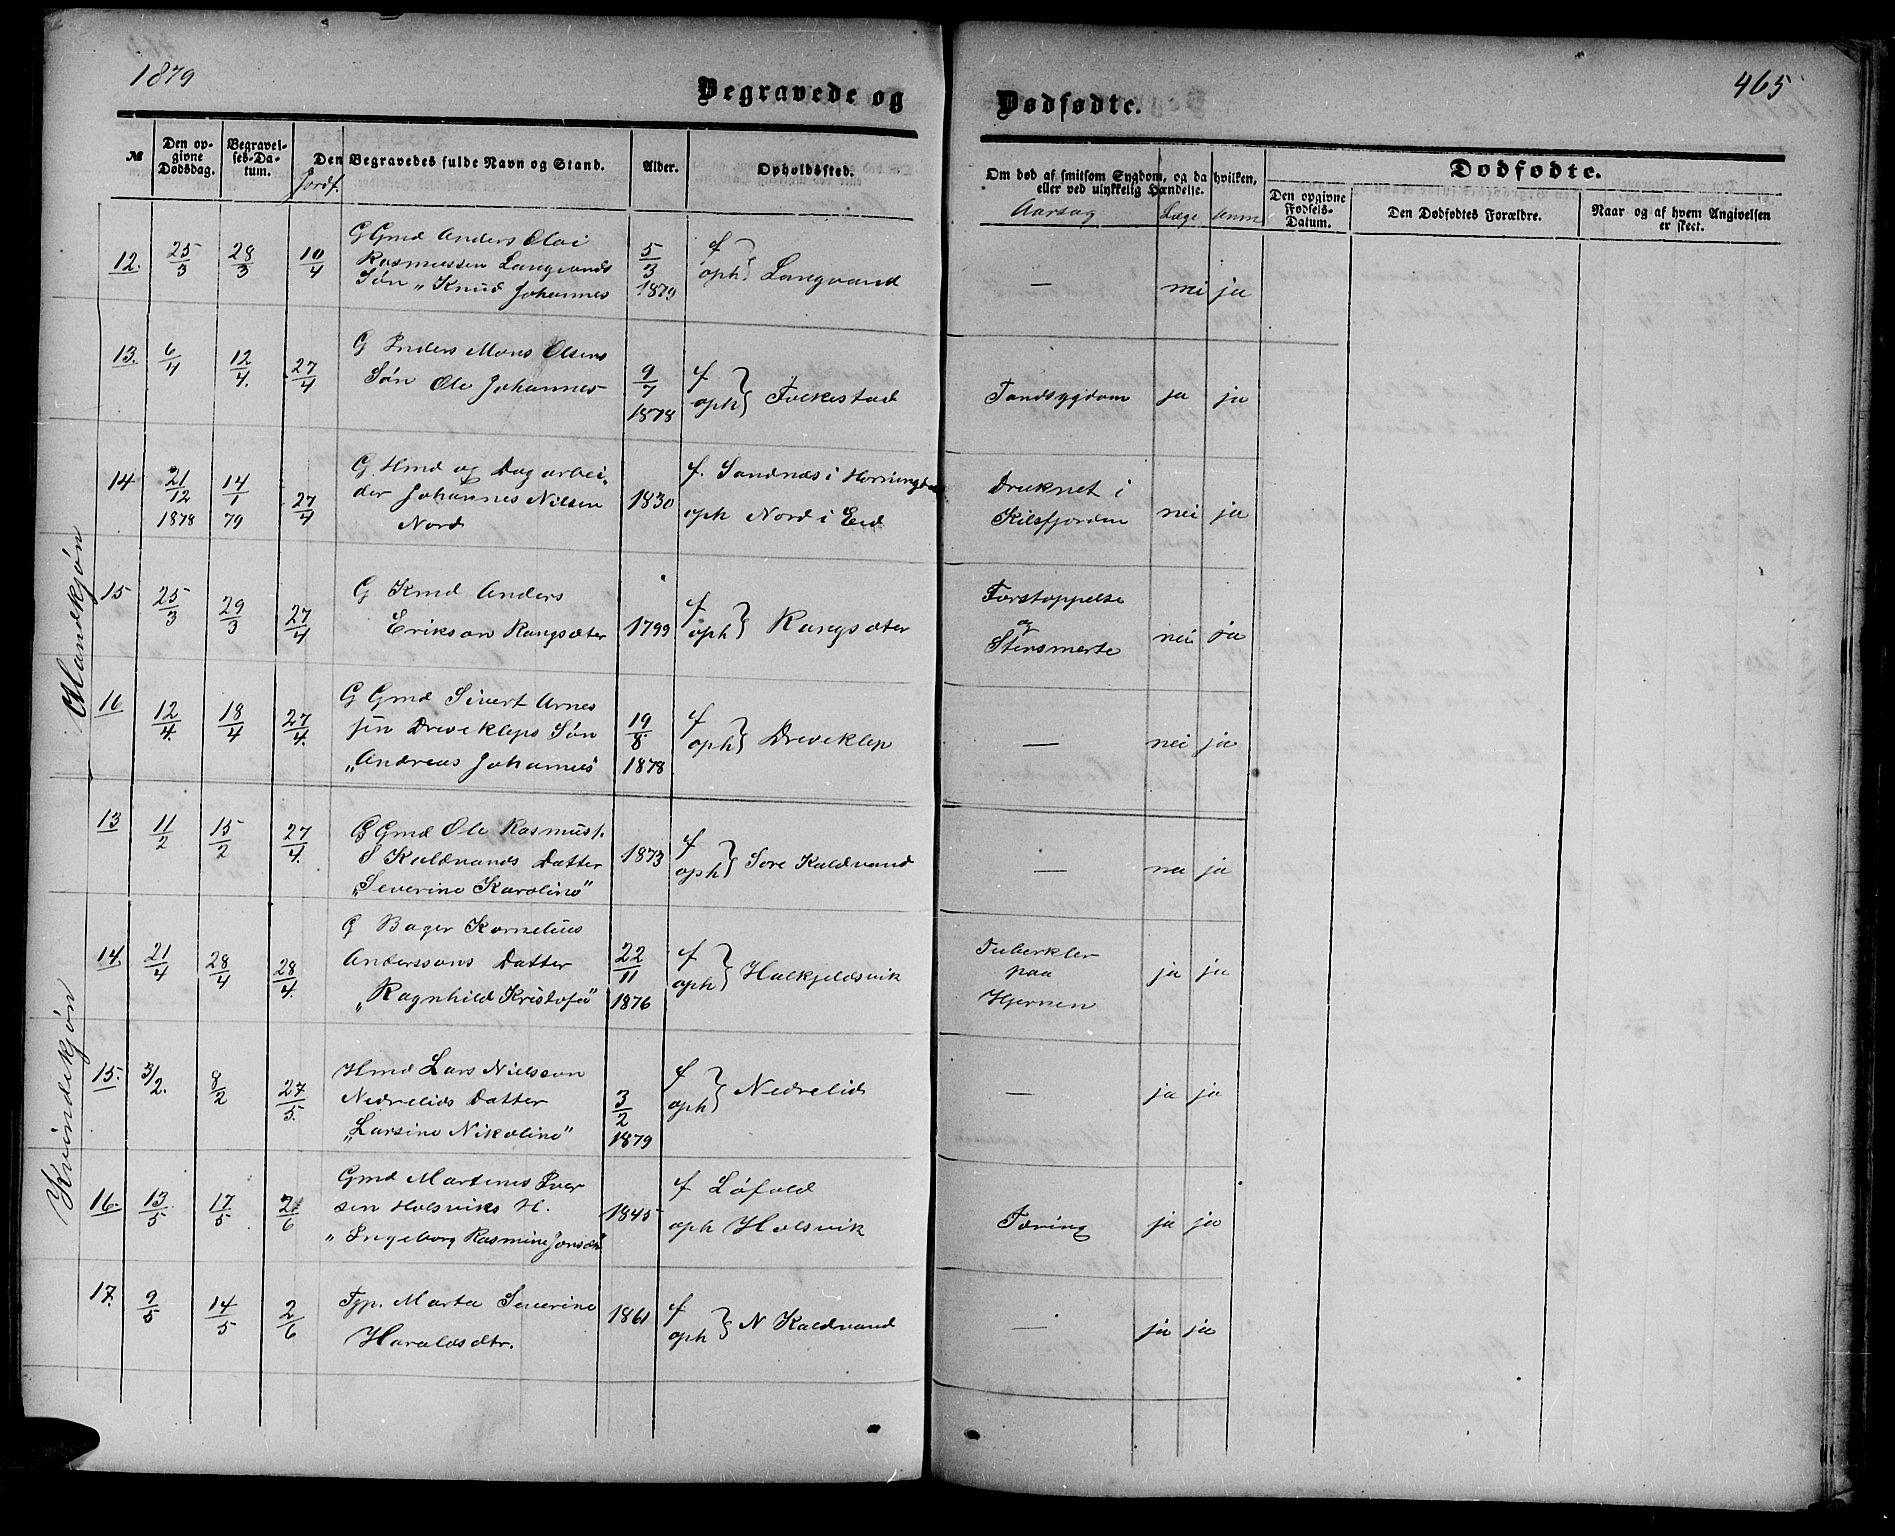 1879
Begravede og
Dødfødte.
465
№
Den opgivne Dødsdag.
Begravelses-Datum.
Jordf.
Den Begravedes fulde Navn og Stand.
Alder.
Opholdssted.
Om død af smitsom Sygdom, og da hvilken, eller ved ulykkelig Hændelse.
Aarsag
Læge
Anm
Dødfødte.
Den opgivne Fødsels-Datum.
Den Dødfødtes Forældre.
Naar og af hvem Angivelsen er skeet.
Mandekjøn
12. 25/3 28/3 10/4
G Gmd Anders Elai
Rasmussen Langvands
Søn „Knud Johannes
5/3 1879
f } oph } Langvand
— nei ja
13. 6/4 12/4. 27/4
G Inders Mons Olsens
Søn Ole Johannes
9/7 1878
f } oph } Folkestad
Tandsygdom ja ja
14 21/12 1878 14/1 79 27/4
G Hmd og Dagarbei-
der Johannes Nilsen
Nord
1830
f. Sandnæs i Horningd
oph Nord i Eid
Druknet i
Kilsfjorden nei ja
15 25/3 29/3 27/4
G Kmd Anders
Erikson Rangsæter
1799
f } oph } Rangsæter
Forstoppelse
og
Stensmerte nei ja
16 12/4. 18/4 27/4.
G Gmd Sivert Arnes
sen Drevekleps Søn
„Andreas Johannes
19/8 1878
f } oph } Dreveklep
— nei ja
Kvindekjøn
13 11/2 15/2 27/4.
G Gmd Ole Rasmuss.
S Kaldvands Datter
„Severine Karoline"
1873
f } oph } Søre Kaldvand
— nei ja
14. 21/4 28/4 28/4.
G Bager Kornelius
Anderssons Datter
„Ragnhild Kristofa"
22/11 1876
f } oph } Halkjeldsvik
Tuberkler
paa
Hjernen ja ja
15. 3/2. 8/2 27/5.
Hmd Lars Nielsson
Nedrelids Datter
„Larsine Nikoline"
3/2 1879
f } oph } Nedrelid
— ja ja
16. 13/5 17/5 2/6
Gmd Martinus Iver
sen Holsviks H.
„Ingeborg Rasmine Jonsdtr"
1845
f Løfold
oph Holsvik
Tæring ja ja
17. 9/5 14/5 2/6
Tjp. Marta Severine
Haraldsdtr.
1861
f } oph } N Kaldvand
— ja ja